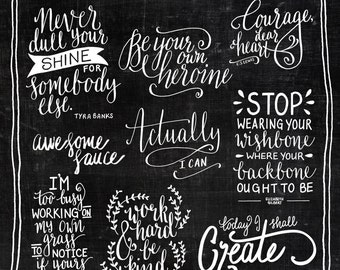 Never
dull your
SHINE
FOR
somebody
else.
TYRA BANKS
Be your
own
heroine
Courage,
dear
heart
C.S. LEWIS
awesome
sauce
Actually
I CAN
STOP
WEARING YOUR
wishbone
WHERE YOUR
backbone
OUGHT TO BE
ELIZABETH
GILBERT
I'M
too busy
WORKING ON
MY OWN
grass
TO NOTICE
if yours
work
hard
& be
kind
today I shall
Create